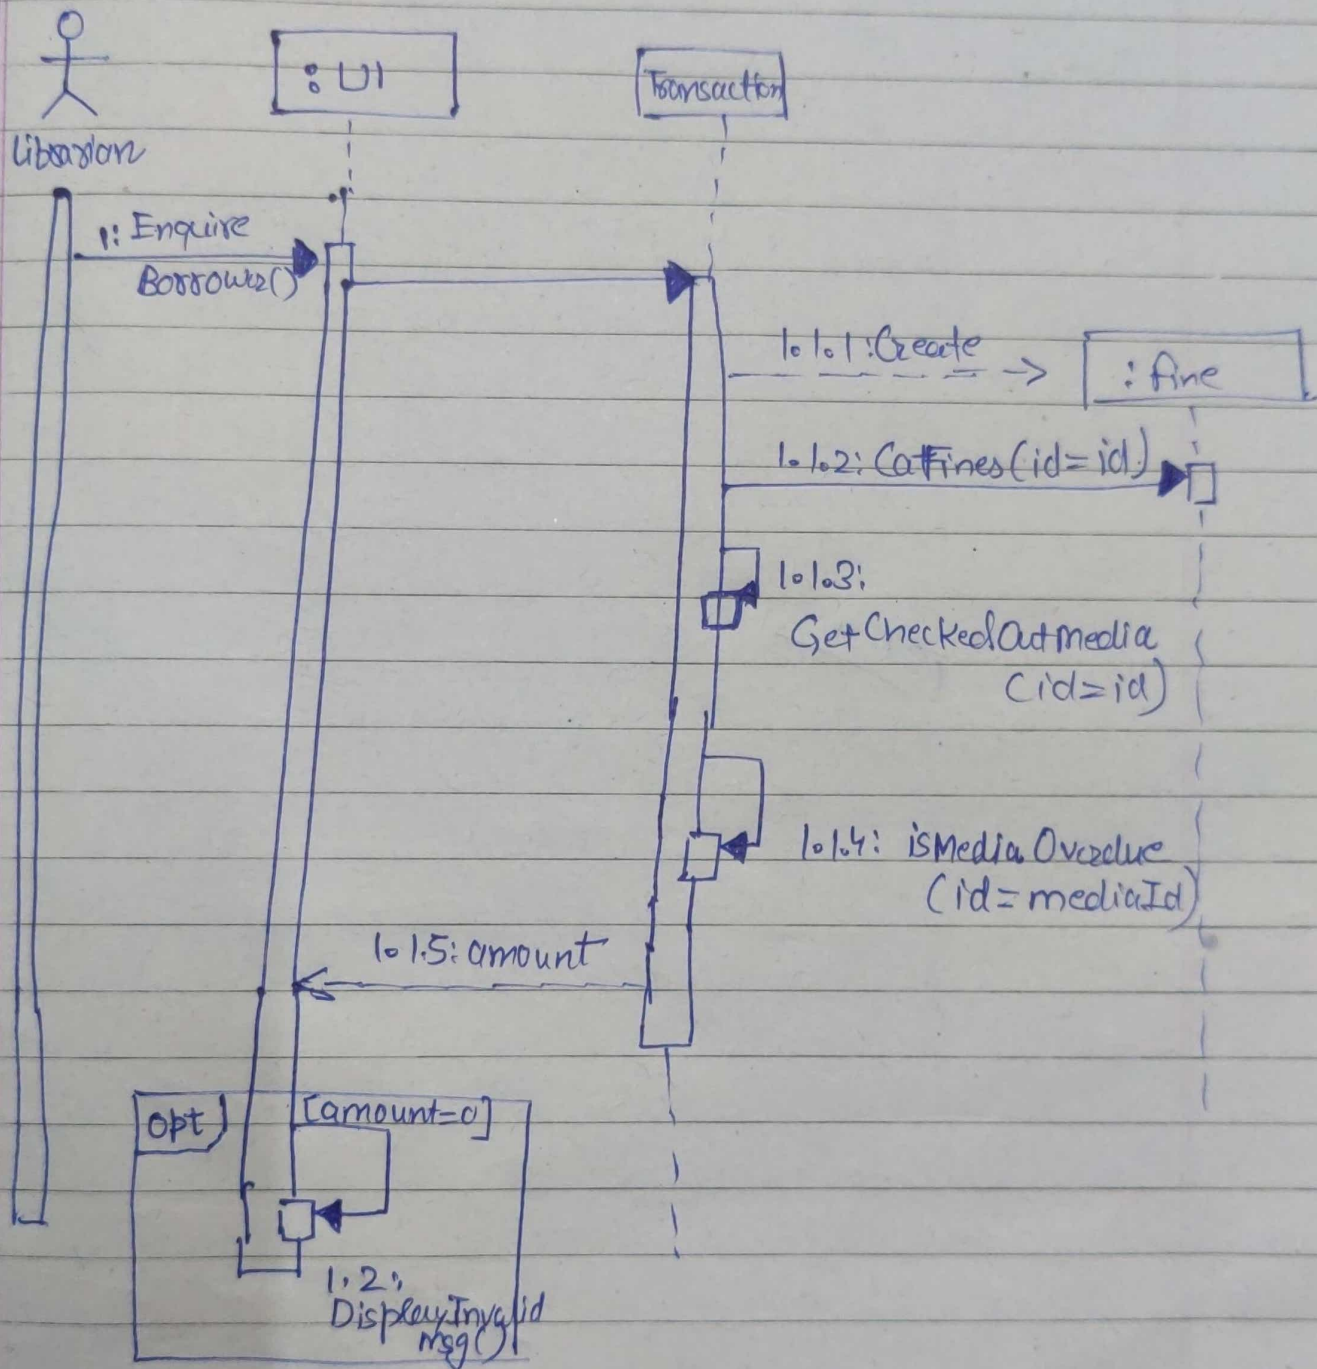 : UI
Transaction
Librarian
1: Enquire
Borrower()
1.1.1: Create
: fine
1.1.2: CatFines(id=id)
1.1.3:
GetCheckedOutmedia
(id=id)
1.1.4: isMediaOverdue
(id=mediaId)
1.1.5: amount
opt
[amount=0]
1.2:
DisplayInvalid
msg()